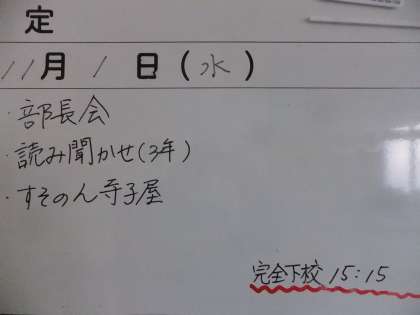 定
11月 1 日(水)
・部長会
・読み聞かせ(3年)
・すそのん寺子屋
完全下校 15:15